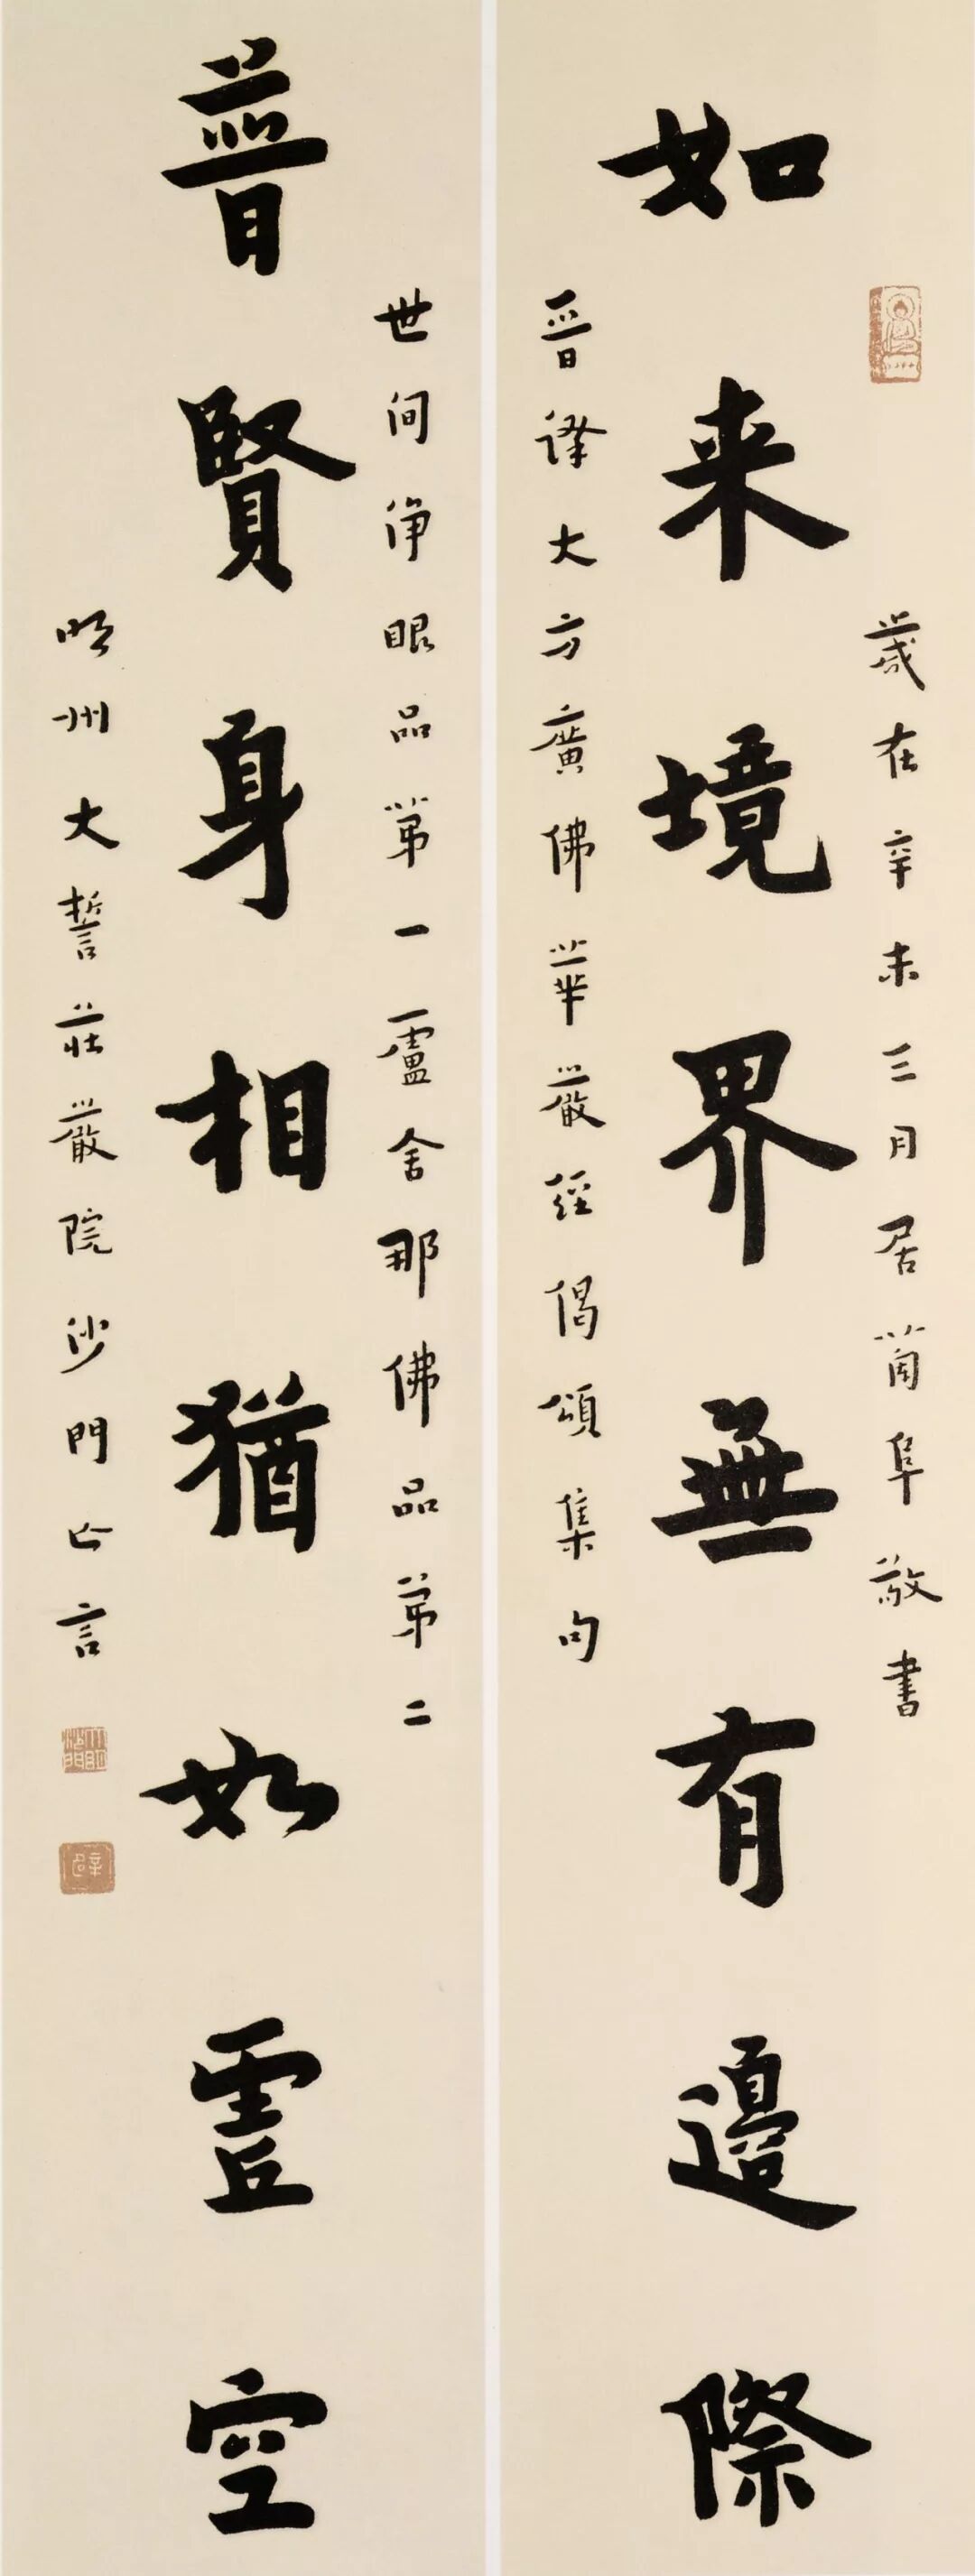 歲在辛未三月居蔔阜敬書
如来境界無有邊際
晉譯大方廣佛華嚴經偈頌集句
世间净眼品第一盧舍那佛品第二
普賢身相猶如虚空
明州大誓莊嚴院沙門亡言